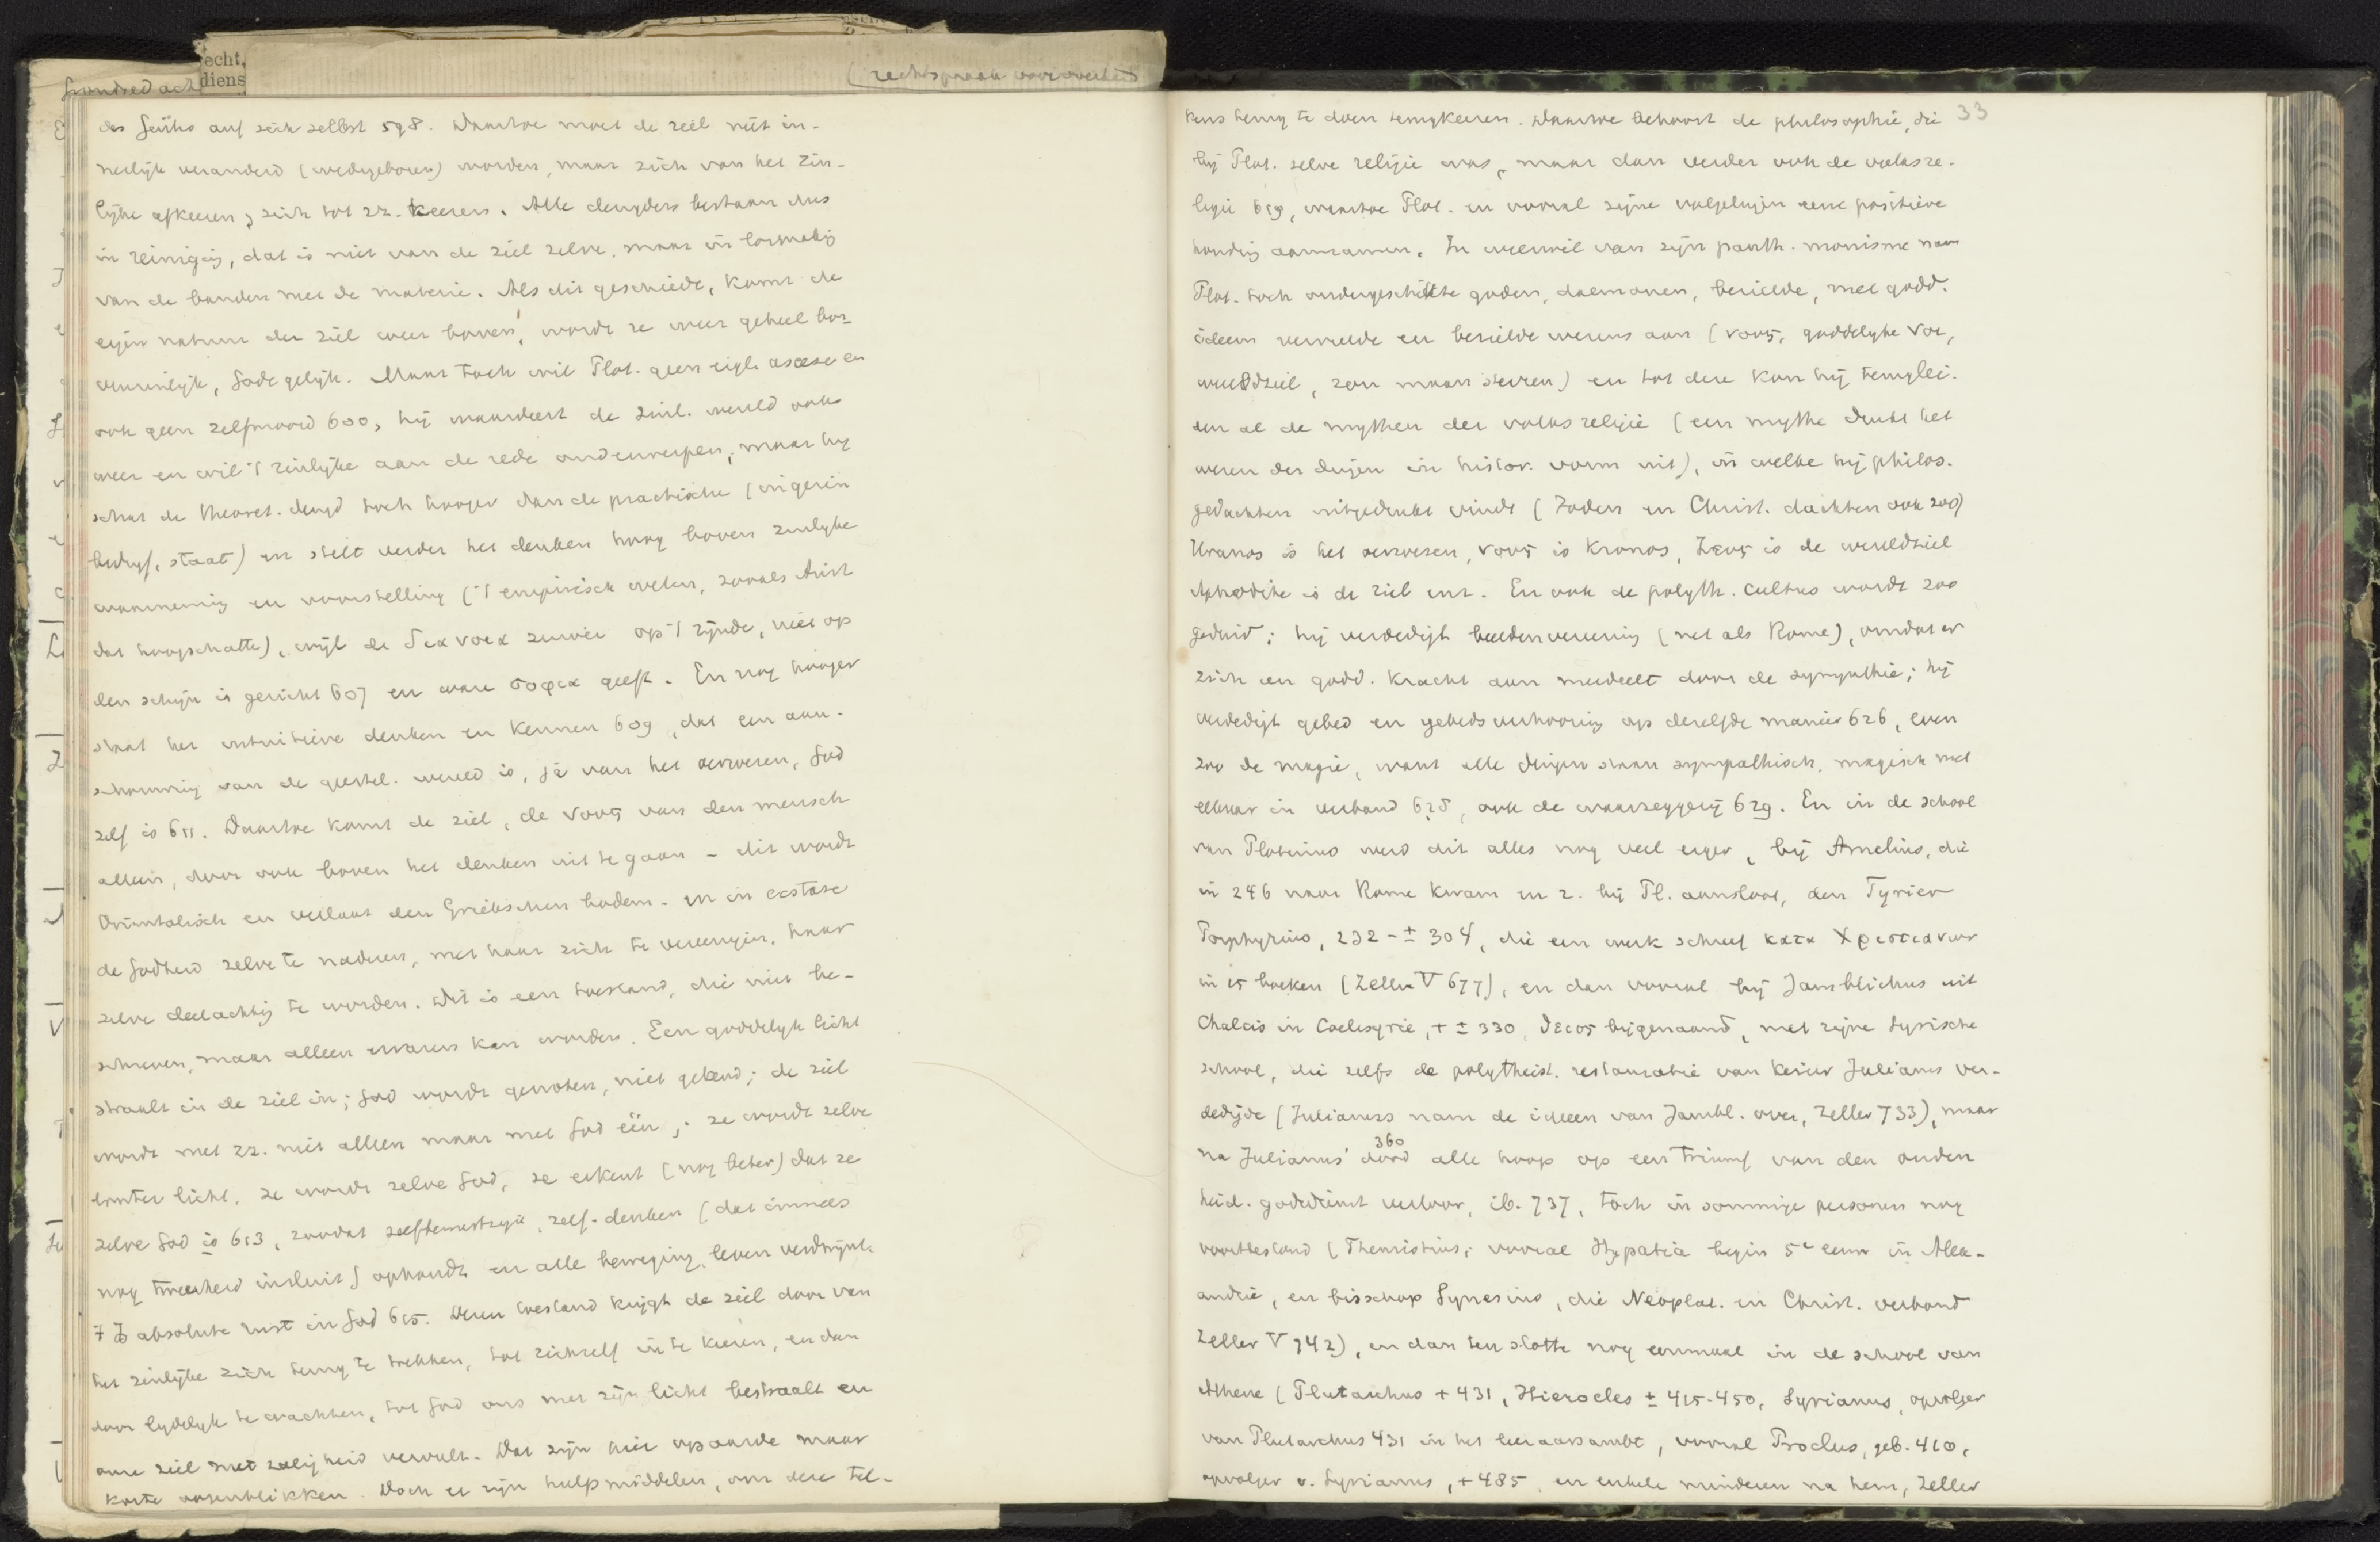 echt,
diens
rechtspraak
des Geistes auf sich selbst 598. Daartoe moet de ziel niet in-
nerlijk veranderd (wedergeboren) worden, maar zich van het zin-
lijke afkeeren, zich tot zz. keeren. Alle deugden bestaan dus
in reiniging, dat is niet van de ziel zelve, maar in losmaking
van de banden met de materie. Als dit geschiedt, komt de
eigen natuur der ziel weer boven, wordt ze weer geheel bov-
Gode gelijk. Maar toch wil Plot. geen eigl. ascese en
ook geen zelfmoord 600, hij waardeert de zinl. wereld ook
weer en wil 't zinlijke aan de rede onderwerpen, maar hij
schat de theoret. deugd toch hooger dan de practische (in gezin
bedrijf, staat) en stelt verder het denken hoog boven zinlijke
waarneming en voorstelling ('t empirisch weten, zooals Arist
dat hoogschatte), wijl de διανοια zuiver op 't zijnde, niet op
den schijn is gericht 607 en ware σοφια geeft. En nog hooger
staat het intuitieve denken en kennen 609, dat een aan-
schouwing van de geestel. wereld is, ja van het oerwezen, God
zelf is 611. Daartoe komt de ziel, de νους van den mensch
alleen, door ook boven het denken uit te gaan - dit wordt
Orientalisch en verlaat den Griekschen bodem - en in ecstase
de Godheid zelve te naderen, met haar zich te vereenigen, haar
zelve deelachtig te worden. Dit is een toestand, die niet be-
schreven, maar alleen ervaren kan worden. Een goddelijk licht
straalt in de ziel in; God wordt genoten, niet gekend; de ziel
wordt met zz. niet alleen maar met God één; ze wordt zelve
louter licht, ze wordt zelve God, ze erkent (nog beter) dat ze
zelve God is 613, zoodat zelfbewustzijn, zelf-denken (dat immers
nog tweeheid insluit) ophoudt en alle beweging, leven verdwijnt.
't Is absolute rust in God 615. Dezen toestand krijgt de ziel door van
het zinlijke zich terug te trekken, tot zichzelf in te keeren, en dan
door lijdelijk te wachten, tot God ons met zijn licht bestraalt en
onze ziel met zaligheid vervult. Dat zijn hier op aarde maar
korte oogenblikken. Doch er zijn hulpmiddelen, om deze tel-
33
kens terug te doen terugkeeren. Daartoe behoort de philosophie, die
bij Plot. zelve religie was, maar dan verder ook de volksre-
ligie 619, waartoe Plot. en vooral zijne volgelingen eene positieve
houding aannamen. In weerwil van zijn panth. monisme nam
Plot. toch ondergeschikte goden, daemonen, bezielde, met godd.
ideeen vervulde en bezielde wezens aan (νους, goddelijke νοι,
wereldziel, zon maan sterren) en tot deze kon hij
al de mythen der volksreligie (een mythe drukt het
wezen der dingen in histor. vorm uit), in welke hij philos.
gedachten uitgedrukt vindt (Joden en Christ. dachten ook zoo)
Uranos is het oerwezen, νους is Kronos, Ζευς is de wereldziel
Aphrodite is de ziel enz. En ook de polyth. cultus wordt zoo
geduid; hij verdedigt beeldenvereering (net als Rome), omdat er
zich een godd. kracht aan mededeelt door de sympathie; hij
verdedigt gebed en gebedsverhooring op dezelfde manier 626, even
zoo de magie, want alle dingen staan sympathisch, magisch met
elkaar in verband 625, ook de waarzeggerij 629. En in de school
van Plotinus werd dit alles nog veel erger, bij Amelius, die
in 246 naar Rome kwam en z. bij Pl. aansloot, den Tyrier
Porphyrius, 232 - ± 304, die een werk schreef κατα Χριστιανων
in 15 boeken (Zeller V 677), en dan vooral bij Jamblichus uit
Chalcis in Coelesyrie, + ± 330, θειος bijgenaamd, met zijne Syrische
school, die zelfs de polytheist. restauratie van keizer Julianus ver-
dedigde (Julianus nam de ideeen van Jambl. over, Zeller 733), maar
360
na Julianus' dood alle hoop op een triumf van den ouden
heid. godsdienst verloor, ib. 737, toch in sommige personen nog
voortbestond (Themistius; vooral Hypatia begin 5e eeuw in Alex-
andrië, en bisschop Synesius, die Neoplat. en Christ. verbond
Zeller V 742), en dan ten slotte nog eenmaal in de school van
Athene (Plutarchus + 431, Hierocles ± 415-450, Syrianus, opvolger
van Plutarchus 431 in het leeraarsambt, vooral Proclus, geb. 410,
opvolger v. Syrianus, + 485, en enkele minderen na hem, Zeller